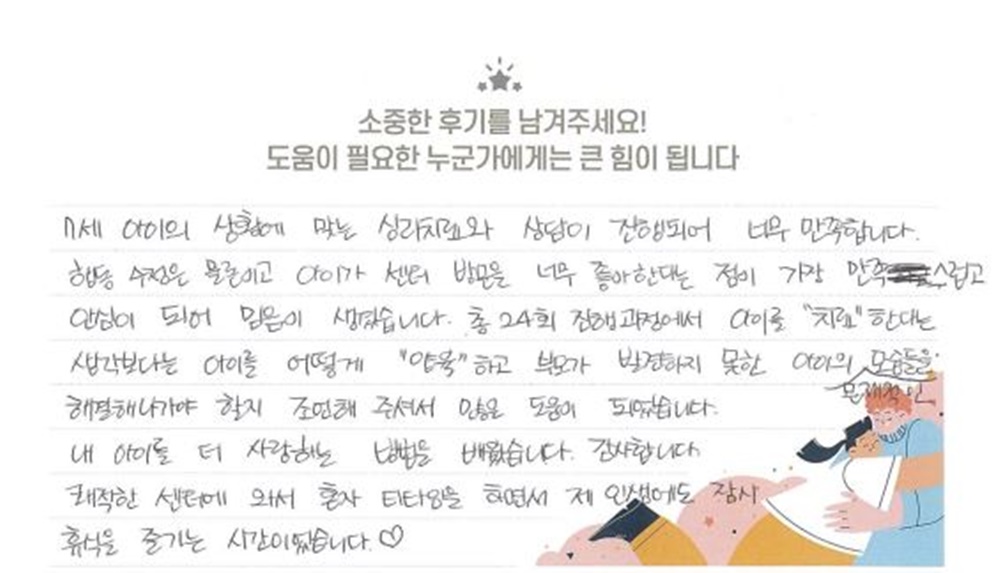 소중한 후기를 남겨주세요!
도움이 필요한 누군가에게는 큰 힘이 됩니다
7세 아이의 상황에 맞는 심리치료와 상담이 진행되어 너무 만족합니다.
행동 수정은 물론이고 아이가 센터 방문을 너무 좋아한다는 점이 가장 만족스럽고
안심이 되어 믿음이 생겼습니다. 총 24회 진행과정에서 아이를 "치료"한다는
생각보다는 아이를 어떻게 "양육"하고 부모가 발견하지 못한 아이의 모습들을
문제적인
해결해나가야 할지 조언해 주셔서 많은 도움이 되었습니다.
내 아이를 더 사랑하는 방법을 배웠습니다. 감사합니다
쾌적한 센터에 와서 혼자 티타임을 하면서 제 인생에도 잠시
휴식을 즐기는 시간이었습니다.♡